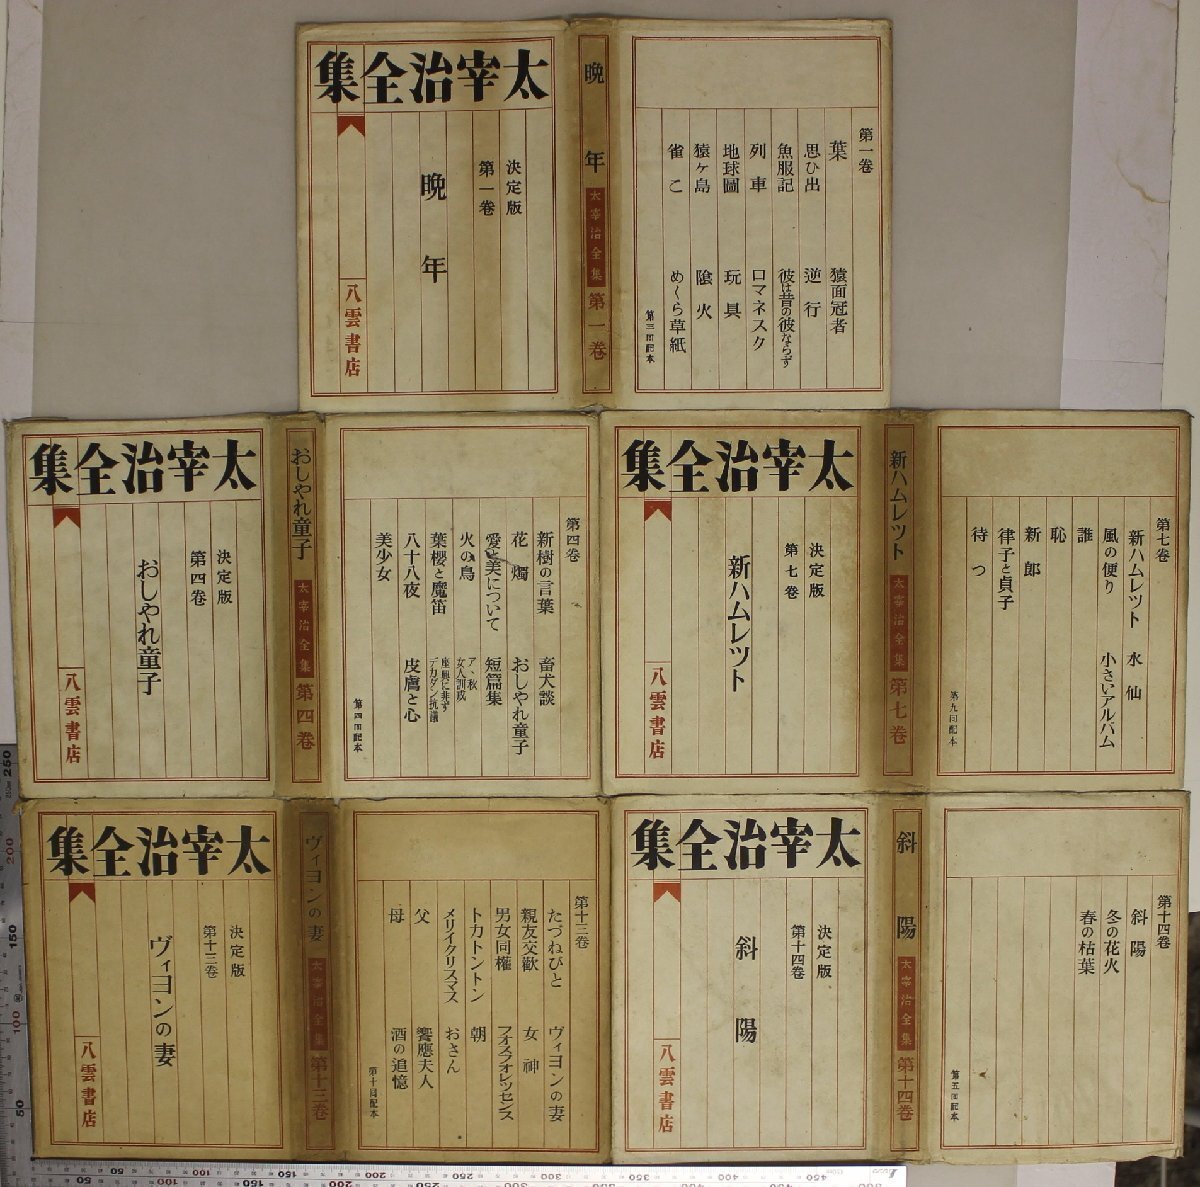 太宰治全集
決定版
第一巻
晩年
八雲書店
晩年
太宰治全集
第一巻
第一巻
葉
思ひ出
魚服記
列車
地球圖
猿ヶ島
雀こ
猿面冠者
逆行
彼は昔の彼ならず
ロマネスク
玩具
陰火
めくら草紙
第三回配本
太宰治全集
決定版
第四巻
おしやれ童子
八雲書店
おしやれ童子
太宰治全集
第四巻
第四巻
新樹の言葉
花燭
愛と美について
火の鳥
葉櫻と魔笛
八十八夜
美少女
畜犬談
おしやれ童子
短篇集
ア、秋
女人訓戒
座興に非ず
デカダン抗議
皮膚と心
第四回配本
太宰治全集
決定版
第七巻
新ハムレツト
八雲書店
新ハムレツト
太宰治全集
第七巻
第七巻
新ハムレツト
風の便り
誰
恥
新郎
律子と貞子
待つ
水仙
小さいアルバム
第九回配本
太宰治全集
決定版
第十三巻
ヴィヨンの妻
八雲書店
ヴィヨンの妻
太宰治全集
第十三巻
第十三巻
たづねびと
親友交歡
男女同權
トカトントン
メリイクリスマス
父
母
ヴィヨンの妻
女神
フオスフオレツセンス
朝
おさん
饗應夫人
酒の追憶
第十回配本
太宰治全集
決定版
第十四巻
斜陽
八雲書店
斜陽
太宰治全集
第十四巻
第十四巻
斜陽
冬の花火
春の枯葉
第五回配本